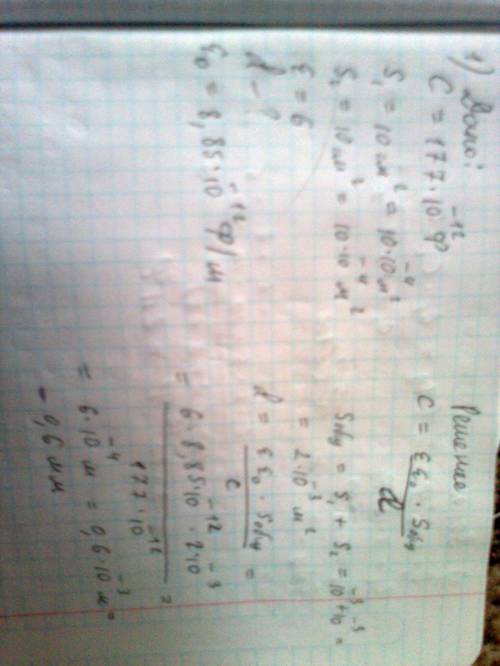 1) Дано:
C = 177·10⁻¹² ф
S₁ = 10 см² = 10·10⁻⁴ м²
S₂ = 10 см² = 10·10⁻⁴ м²
ε = 6
d - ?
ε₀ = 8,85·10⁻¹² ф/м
Решение
C = εε₀ · Sобщ / d
Sобщ = S₁ + S₂ = 10⁻³ + 10⁻³ =
= 2·10⁻³ м²
d = εε₀ · Sобщ / C =
= 6·8,85·10⁻¹² · 2·10⁻³ / 177·10⁻¹² =
= 6·10⁻⁴ м = 0,6·10⁻³ м =
= 0,6 мм